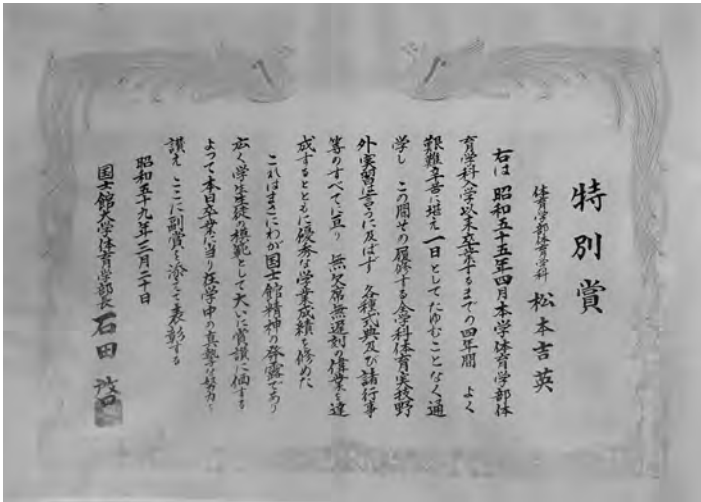 特別賞
体育学部体育学科 松本吉英
右は 昭和五十五年四月本学体育学部体
育学科入学以来卒業するまでの四年間 よく
艱難辛苦に堪え 一日としてたゆむことなく通
学し この間その履修する全学科体育実技野
外実習は言うに及ばず 各種式典及び諸行事
等のすべてに亘り 無欠席無遅刻の偉業を達
成するとともに優秀な学業成績を修めた
これはまさにわが国士館精神の発露であり
広く学生生徒の模範として大いに賞讃に価する
よって本日卒業に当り在学中の真摯な努力を
讃え ここに副賞を添えて表彰する
昭和五十九年三月二十日
国士館大学体育学部長 石田